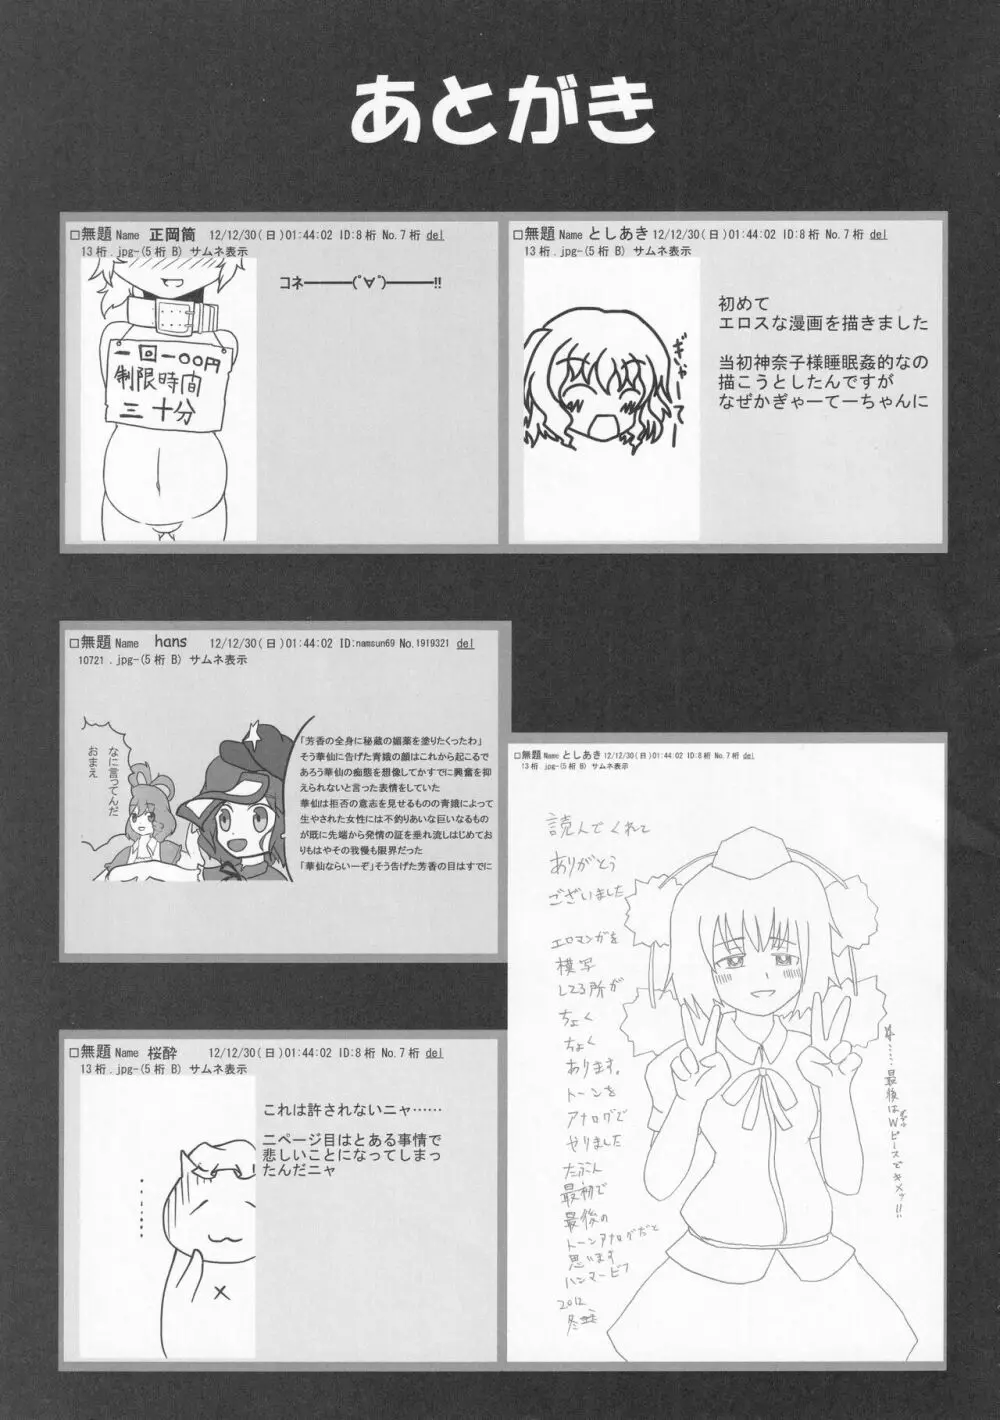 あとがき
□無題 Name 正岡筒 12/12/30(日)01:44:02 ID:8桁 No.7桁 del
13桁.jpg-(5桁 B) サムネ表示
コネ━━━━(ﾟ∀ﾟ)━━━━!!
一回一〇〇円
制限時間
三十分
□無題 Name としあき 12/12/30(日)01:44:02 ID:8桁 No.7桁 del
13桁.jpg-(5桁 B) サムネ表示
ぎゃーてー
初めて
エロスな漫画を描きました
当初神奈子様睡眠姦的なの
描こうとしたんですが
なぜかぎゃーてーちゃんに
□無題 Name hans 12/12/30(日)01:44:02 ID:namsun69 No.1919321 del
10721.jpg-(5桁 B) サムネ表示
なに言ってんだ
おまえ
「芳香の全身に秘蔵の媚薬を塗りたくったわ」
そう華仙に告げた青娥の顔はこれから起こるで
あろう華仙の痴態を想像してかすでに興奮を抑
えられないと言った表情をしていた
華仙は拒否の意志を見せるものの青娥によって
生やされた女性には不釣りあいな巨いなるもの
が既に先端から発情の証を垂れ流しはじめてお
りもはやその我慢も限界だった
「華仙ならいーぞ」そう告げた芳香の目はすでに
□無題 Name としあき 12/12/30(日)01:44:02 ID:8桁 No.7桁 del
13桁.jpg-(5桁 B) サムネ表示
読んでくれて
ありがとう
ございました
エロマンガを
模写
してる所が
ちょく
ちょく
あります。
トーンを
アナログで
やりました
たぶん
最初で
最後の
トーンアナログだと
思います
ハンマービフ
2012
冬
最後は
Wピースでキメッ!!
□無題 Name 桜酔 12/12/30(日)01:44:02 ID:8桁 No.7桁 del
13桁.jpg-(5桁 B) サムネ表示
これは許されないニャ……
二ページ目はとある事情で
悲しいことになってしまっ
たんだニャ